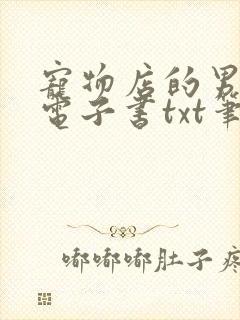 寵物店的男
電子書txt筆
嘟嘟嘟肚子疼